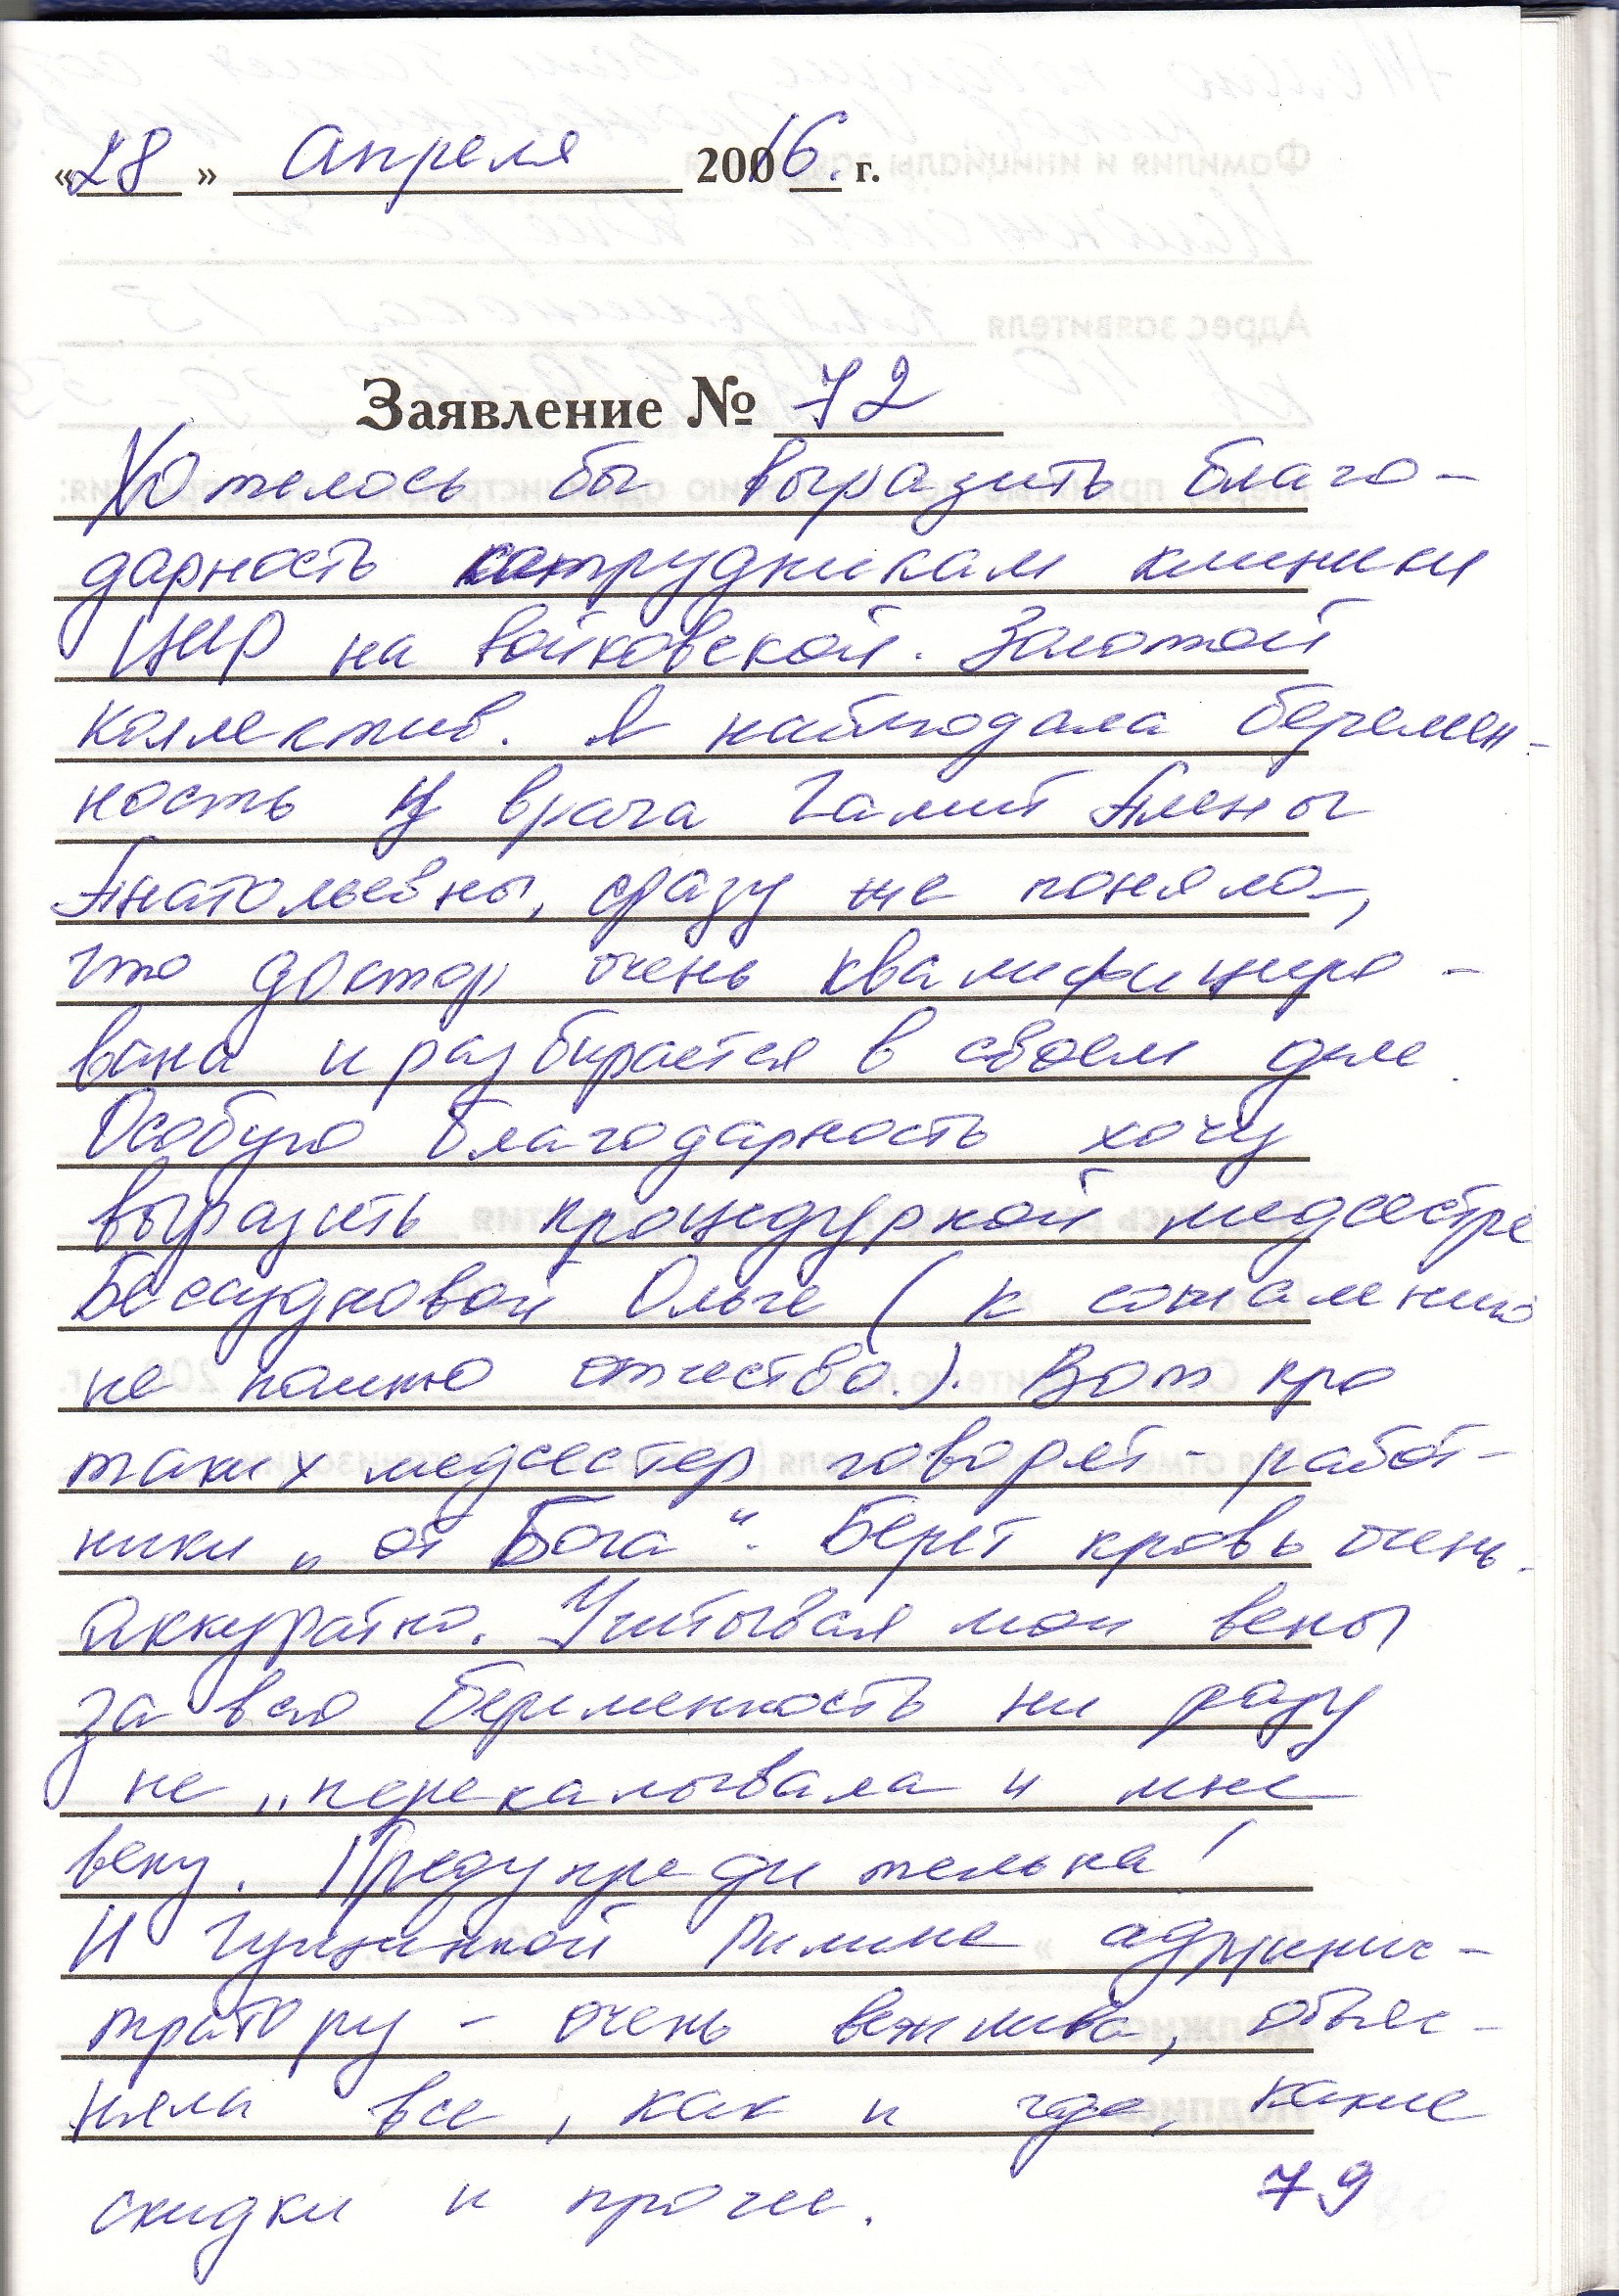 «28» апреля 20016. г.
Заявление № 72
Хотелось бы выразить благо-
дарность сотрудникам клиники
ЦИР на Войковской. Золотой
коллектив. Я наблюдала беремен-
ность у врача Гамит Алены
Анатольевны, сразу же поняла,
что доктор очень квалифициро-
вана и разбирается в своем деле.
Особую благодарность хочу
выразить процедурной медсестре
Бессудновой Ольге (к сожалению
не помню отчество.). Вот про
таких медсестер говорят - работ-
ники „от Бога". Берет кровь очень
аккуратно. Учитывая мои вены
за всю беременность ни разу
не „перекалывала" мне
вену. Предупредительна!
И Римме админис-
тратору - очень вежлива, объяс-
няла все, как и где, какие
скидки и прочее.
79